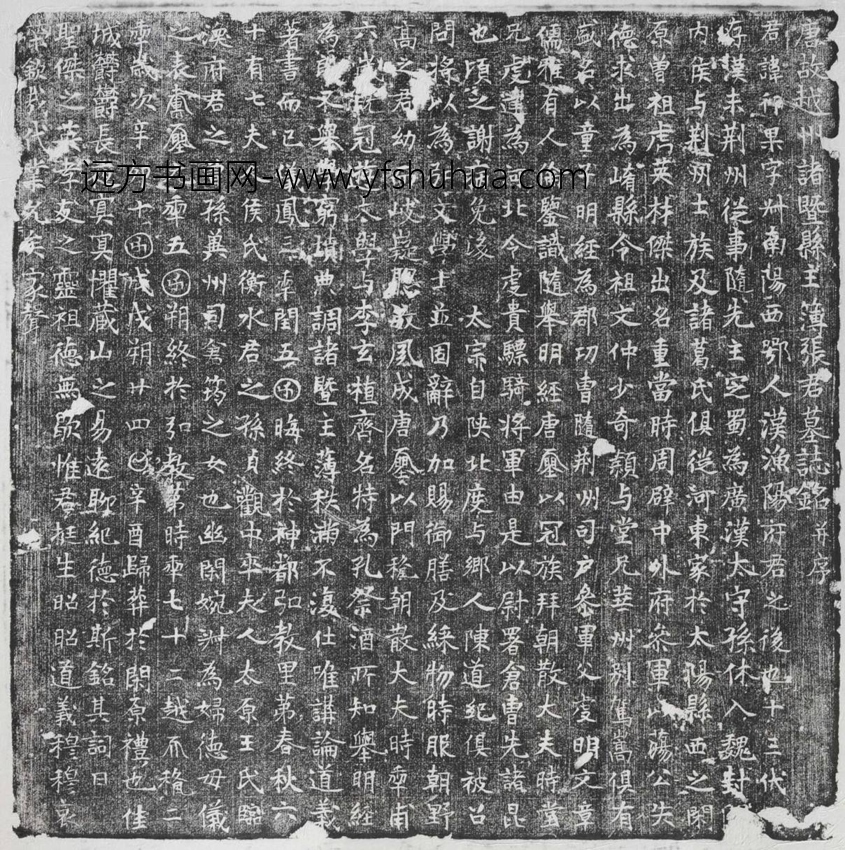 唐故越州諸暨縣主薄張君墓誌銘并序
君諱神果字　南陽西鄂人漢漁陽府君之後也十三代
存漢末荆州從事隨先主定蜀為廣漢太守孫休入魏封
内侯与荆州士族及諸葛氏俱從河東家於太陽縣西之閑
原曾祖彪英材傑出名重當時周辟中外府叅軍以蕩公失
德求出為崤縣令祖文仲少奇穎与堂兄莘州別駕嵩俱有
盛名以童子明經為郡功曹隨荆州司户叅軍父虔明文章
儒雅有人倫鑒識隨舉明經唐𠪱以冠族拜朝散大夫時堂
兄虔運為河北令虔貴驃騎將軍由是以尉署倉曹先諸昆
也頃之謝病免後太宗自陝北度与鄉人陳道紀俱被召
問將以為弘文學士並固辭乃加賜御膳及綵物時服朝野
高之君幼　岐嶷聡敏夙成唐𠪱以門稺朝散大夫時秊甫
六歲既冠遊太學与李玄植齊名特為孔祭酒所知舉明經
為　不舉　窮瑣典調諸暨主薄秩滿不復仕唯講論道義
著書而已以鳳三秊閏五囝晦終於神都弘教里苐春秋六
十有七夫人侯氏衡水君之孫貞觀中卒夫人太原王氏臨
漢府君之孫冀州司倉筠之女也幽閑婉淑為婦德母儀
之表大𠪱秊五囝朔終於弘教苐時秊七十二越不稺二
秊歲次辛　十囝戊戌朔廿四〇辛酉歸葬於閑原禮也佳
城欝欝長　冥冥懼藏山之易遠聊紀德於斯銘其詞曰
聖傑之英孝友之靈祖德無歇惟君挺生昭昭道義穆穆哀
榮　代業文侯家聲
远方书画网-www.yfshuhua.com